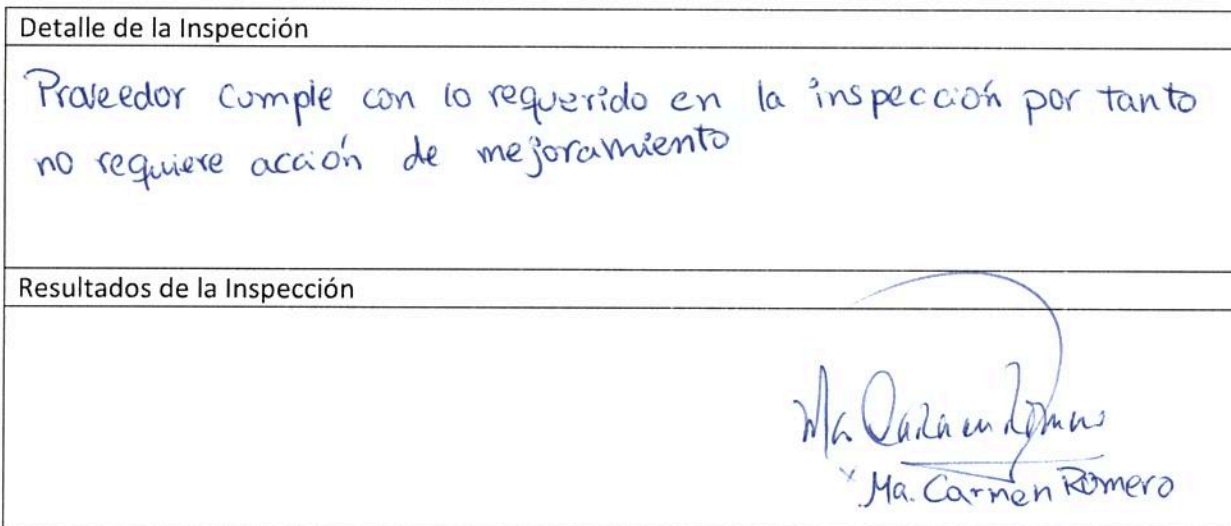 Detalle de la Inspección
Proveedor cumple con lo requerido en la inspección por tanto
no requiere acción de mejoramiento
Resultados de la Inspección
Ma. Carmen Romero
Ma. Carmen Romero